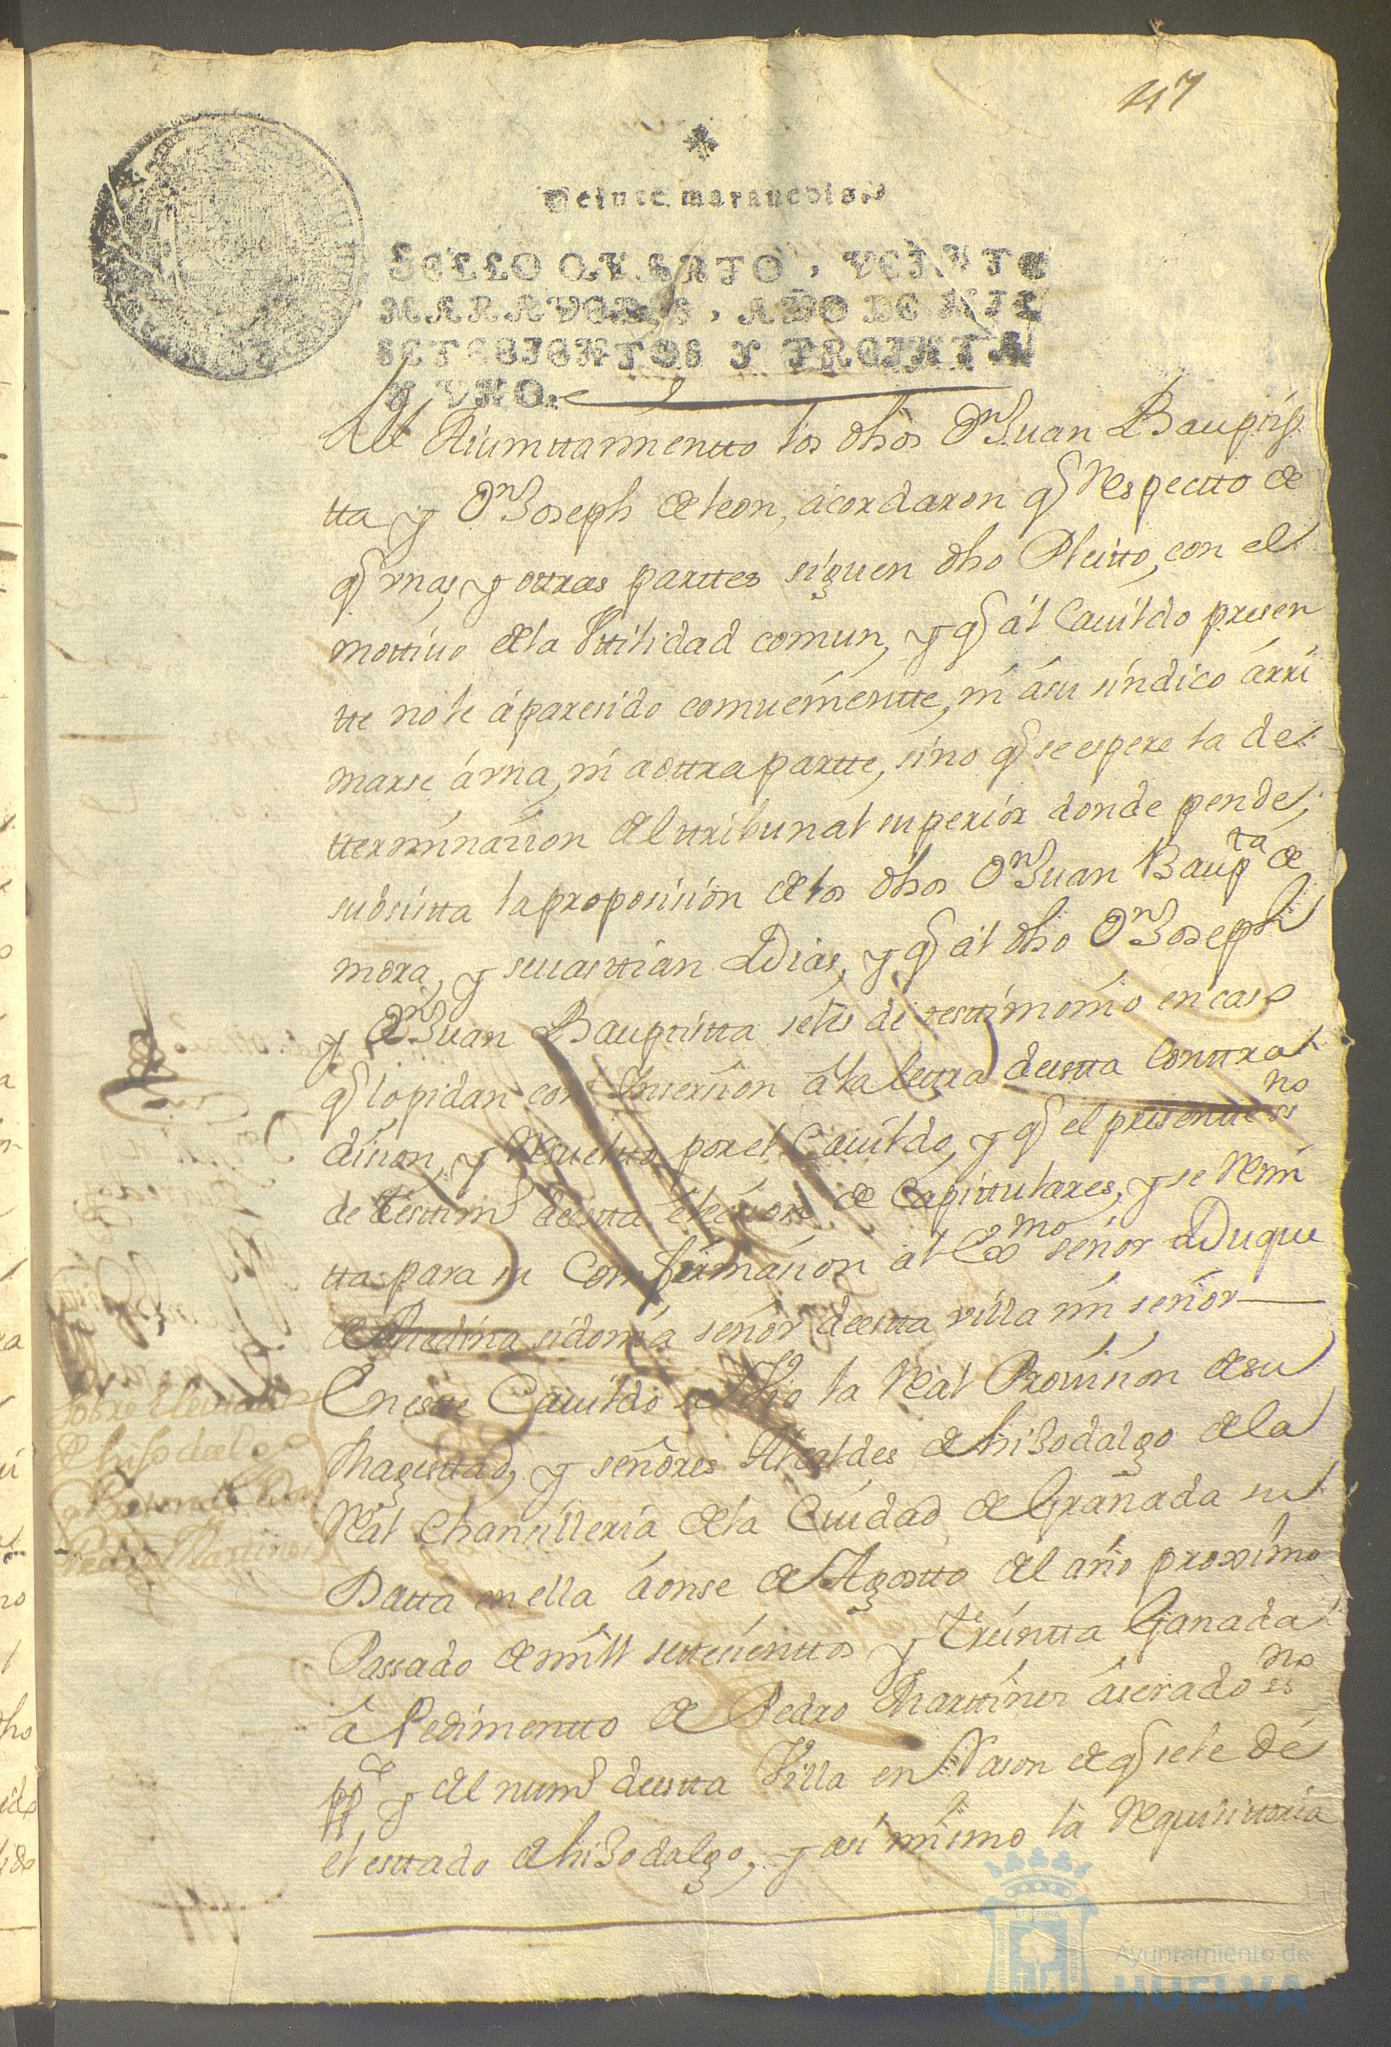 47
Veinte maravedis.
SELLO QVARTO, VEINTE
MARAVEDIS, AÑO DE MIL
SETECIENTOS Y TREINTA
Y UNO.
los dhos Dn Juan Bauptis
tta y Dn Joseph de leon, acordaron q Respectto de
q mas y ottras parttes siguen dho Pleitto, con el
mottivo de la Uttilidad comun, y q al Cavildo presen
tte no le à paresido combeniente, ni à su sindico arri
marse à una, ni a ottra partte, sino q se espere la de
tterminacion del ttribunal superior donde pende,
subsistta la proposision de los dhos Dn Juan Baupta de
mora, y sevasttian Dias, y q al dho Dn Joseph
y Dn Juan Baupttistta se les de testtimonio en caso
q lo pidan con Insercion à la lettra de estta Conttra
dicion, y Resuelto por el Cavildo, y q el presentte esno
de testtimo de estta eleccion de Capittulares, y se Remi
tta para su Confirmacion al Exmo señor Duque
de Medina sidonia señor de estta villa mi señor
En este Cavildo se Vio la Real Provision de su
Magesttad, y señores Alcaldes de hijodalgo de la
Real Chansilleria de la Ciudad de Granada su
Datta en ella à onse de Agostto del año proximo
Passado de mill settecienttos y treintta Ganada
à Pedimentto de Pedro Marttines àserado esno
ppco y del numo de estta Villa en Rason de q se le dé
el esttado de hijodalgo, y asi mismo la Requisittoria
Sobre
de hijodalgo
Pedro Martines
Ayuntamiento de
HUELVA